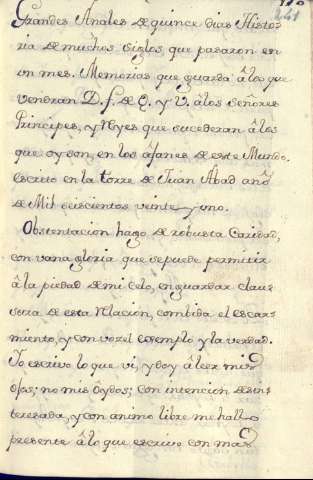 241
Grandes Anales de quince dias Histo-
ria de muchos siglos que pasaron en
un mes. Memorias que guarda âlos que
vendran D. f. de Q. y V. âlos señores
Principes, y Reyes que sucederan âlos
que oy son, en los âfanes de este Mundo.
Escrito en la torre de Juan Abad año
de Mil seiscientos veinte y uno.
Obstentacion hago de robusta Caridad,
con vana gloria que se puede permitir
â la piedad de mi celo, en guardar claus
de esta Relacion, combida el escar-
miento, y con voz el exemplo y la verdad.
Yo escrivo lo que vi, y doy â leer mis
ojos; no mis oydos; con intencion desin-
teresada, y con animo libre me hallo
presente â lo que escrivo con mas